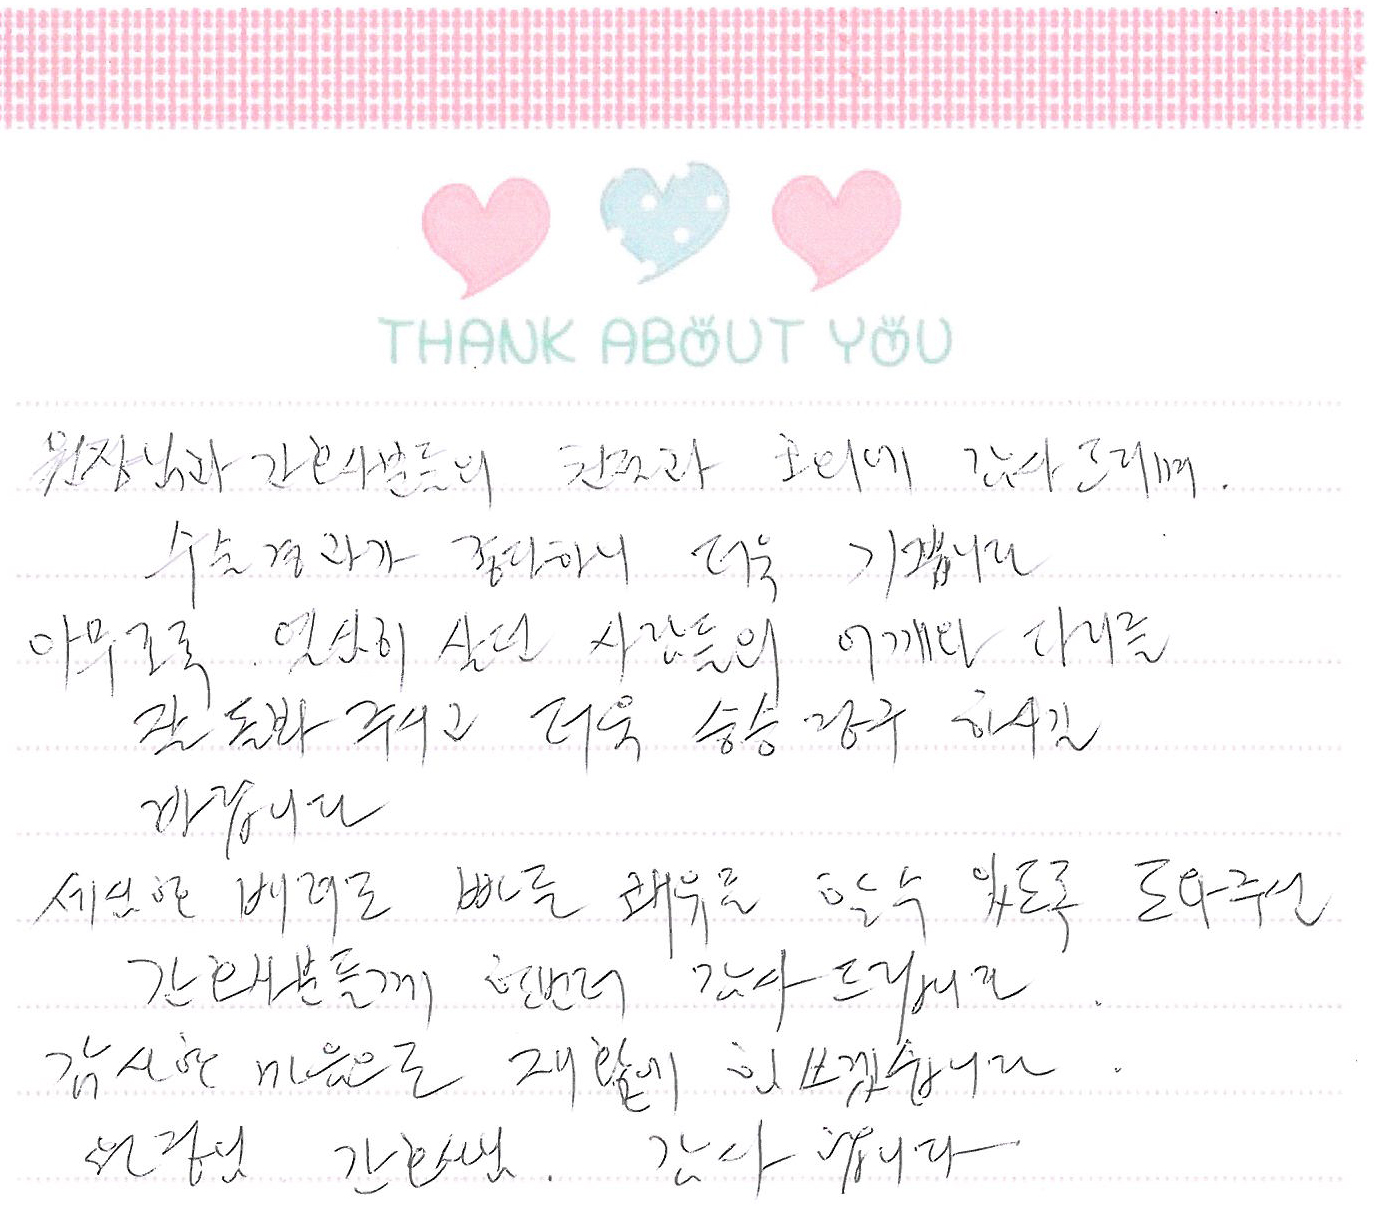 THANK ABOUT YOU
원장님과 간호사분들의 친절과 호의에 감사드리며.
수술경과가 좋다하니 더욱 기쁩니다
아무쪼록 열심히 살던 사람들의 어깨와 다리를
잘 돌봐 주시고 더욱 승승장구 하시길
바랍니다
세심한 배려로 빠른 쾌유를 할수 있도록 도와주신
간호사분들께 한번더 감사드립니다.
감사한 마음으로 재활에 힘쓰겠습니다.
원장님 간호사님. 감사합니다